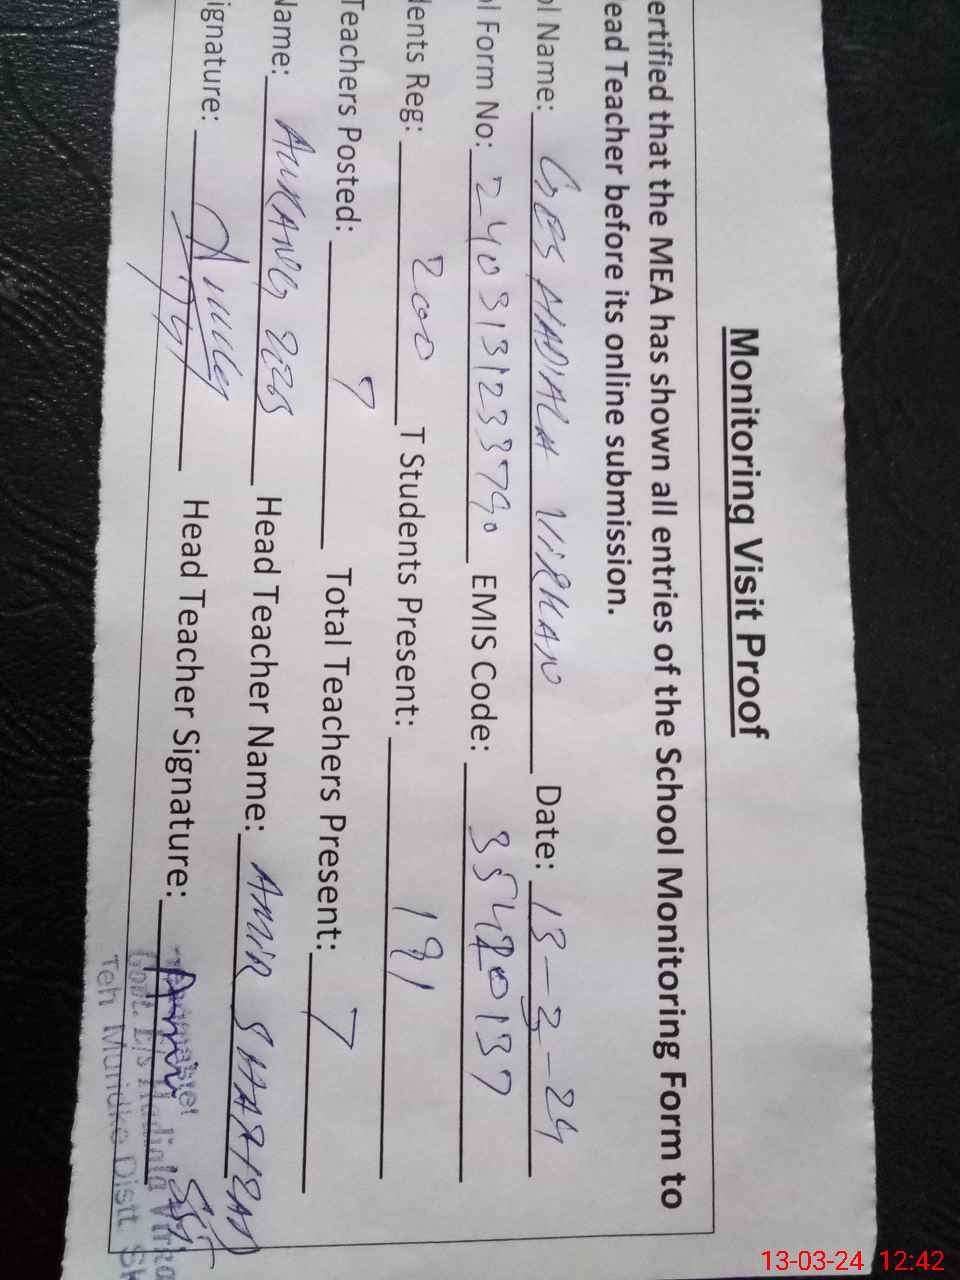 Monitoring Visit Proof
ertified that the MEA has shown all entries of the School Monitoring Form to
ead Teacher before its online submission.
ol Name: GES HADIALA VIRKAN Date: 13-3-24
ol Form No: 2403131233790 EMIS Code: 35420137
dents Reg: 200 T Students Present: 191
Teachers Posted: 7 Total Teachers Present: 7
Name: AURANG ZEB Head Teacher Name: AMIR SHAHZAD
ignature: Head Teacher Signature: Amir
Govt. E/S Hadiala Virka
Teh Muridke Distt. Sh
13-03-24 12:42